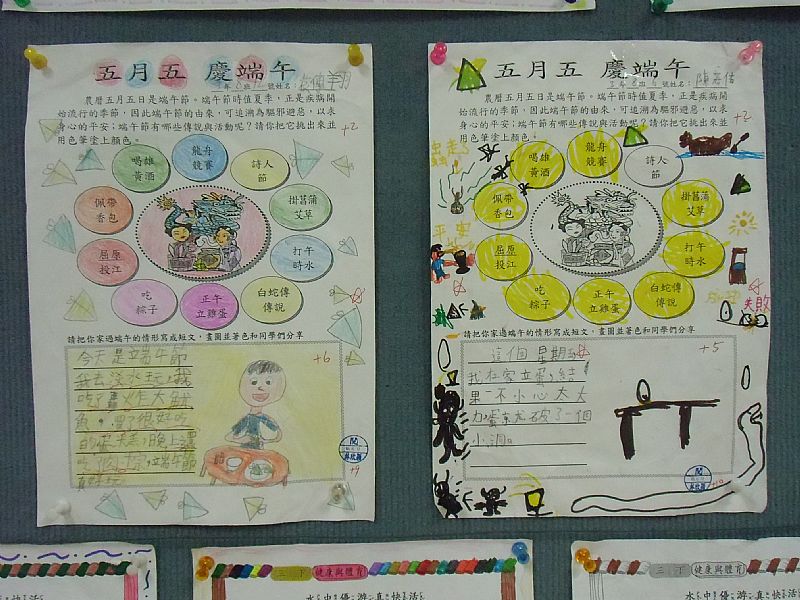 五月五 慶端午
農曆五月五日是端午節。端午節時值夏季，正是疾病開
始流行的季節，因此端午節的由來，可追溯為驅邪避惡，以求
身心的平安；端午節有哪些傳說與活動呢？請你把它挑出來並
用色筆塗上顏色。
+2
喝雄
黃酒
龍舟
競賽
詩人
節
佩帶
香包
掛菖蒲
艾草
屈原
投江
打午
時水
吃
粽子
正午
立雞蛋
白蛇傳
傳說
請把你家過端午的情形寫成短文，畫圖並著色和同學們分享
+6
今天是端午節
我去淡水玩，我
吃了炸大魷
魚，買了很好吃
端午節
真好玩
閱
+9
五月五 慶端午
農曆五月五日是端午節。端午節時值夏季，正是疾病開
始流行的季節，因此端午節的由來，可追溯為驅邪避惡，以求
身心的平安；端午節有哪些傳說與活動呢？請你把它挑出來並
用色筆塗上顏色。
+2
喝雄
黃酒
龍舟
競賽
詩人
節
佩帶
香包
掛菖蒲
艾草
屈原
投江
打午
時水
吃
粽子
正午
立雞蛋
白蛇傳
傳說
失敗
請把你家過端午的情形寫成短文，畫圖並著色和同學們分享
+5
這個星期
我在家立蛋，結
果一不小心太大
力，蛋
了一個
小洞。
閱
三 丁 健康與體育
水中優游真快活
三 丁 健康與體育
水中優游真快活
水中優游真快活